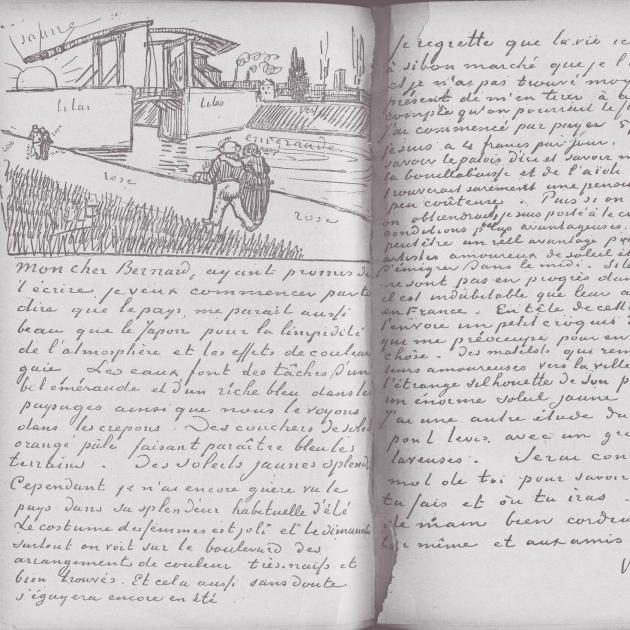 jaune
lilas
lilas
vert
émeraude
rose
rose
Mon cher Bernard, ayant promis de
t'écrire je veux commencer par te
dire que le pays me parait aussi
beau que le Japon pour la limpidité
de l'atmosphère et les effets de couleur
gaie. Les eaux font des tâches d'un
bel émeraude et d'un riche bleu dans les
paysages ainsi que nous le voyons
dans les crepons. Des couchers de soleil
orangé pâle faisant paraître bleu les
terrains. Des soleils jaunes splendides
Cependant je n'ai encore guère vu le
pays dans sa splendeur habituelle d'été
Le costume des femmes est joli et le dimanche
surtout on voit sur le boulevard des
arrangements de couleur très naïfs et
bien trouvés. Et cela aussi sans doute
s'égayera encore en été.
je regrette que la vie ici
à si bon marché que je l'
et je n'ai pas trouvé moy
présent de m'en tirer à
compte qu'on pourrait le
j'ai commencé par payer 5
je suis à 4 francs par jour.
savoir le patois d'ici et savoir m
la bouillabaisse et de l'aïoli
trouverait surement une pension
peu coûteuse. Puis si on
on obtiendrait je suis porté à le cr
conditions plus avantageuses.
peut être un réell avantage p
artistes amoureux de soleil et
d'émigrer dans le midi. Si le
ne sont pas en progrès dans
il est indubitable que leur a
en France. En tête de cette
t'envoie un petit croquis
qui me préoccupe pour en
chose. Des matelots qui rem
leurs amoureuses vers la ville
l'étrange silhouette de son p
un énorme soleil jaune
J'ai une autre étude du
pont levis avec un gr
laveuses. Serai con
mot de toi pour savoir
tu fais et où tu iras.
main bien cordia
même et aux amis
V